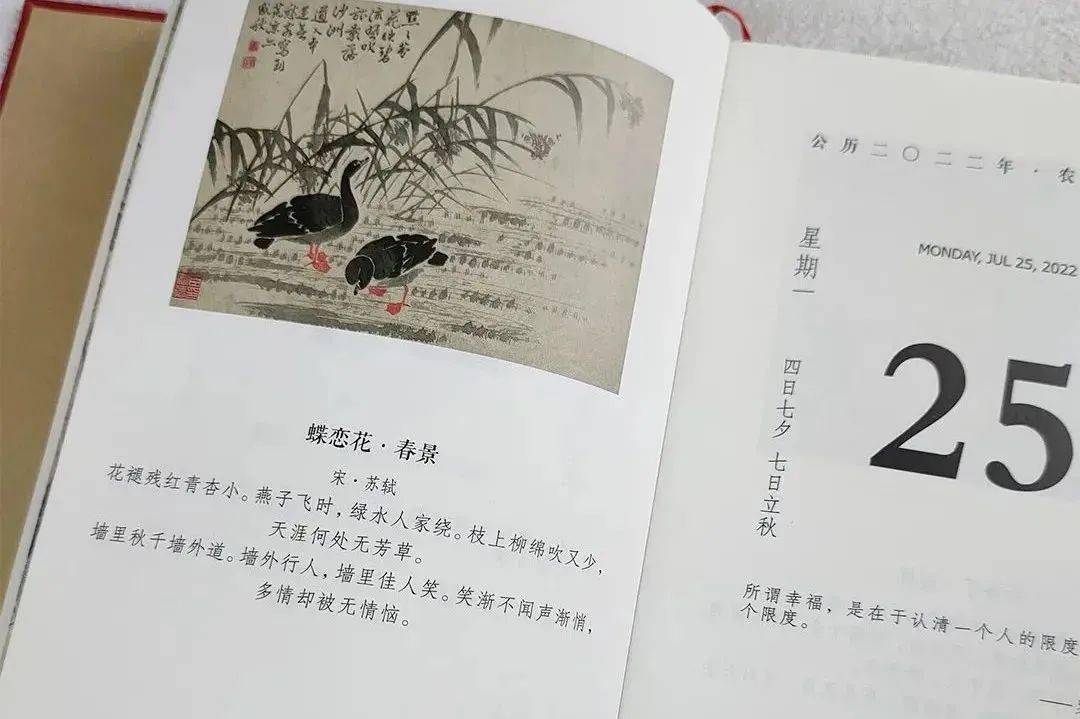 蝶恋花·春景
宋·苏轼
花褪残红青杏小。燕子飞时，绿水人家绕。枝上柳绵吹又少，
天涯何处无芳草。
墙里秋千墙外道。墙外行人，墙里佳人笑。笑渐不闻声渐悄，
多情却被无情恼。
公历二〇二二年·农
星期一
MONDAY, JUL 25, 2022
四日七夕 七日立秋
25
所谓幸福，是在于认清一个人的限度
个限度。